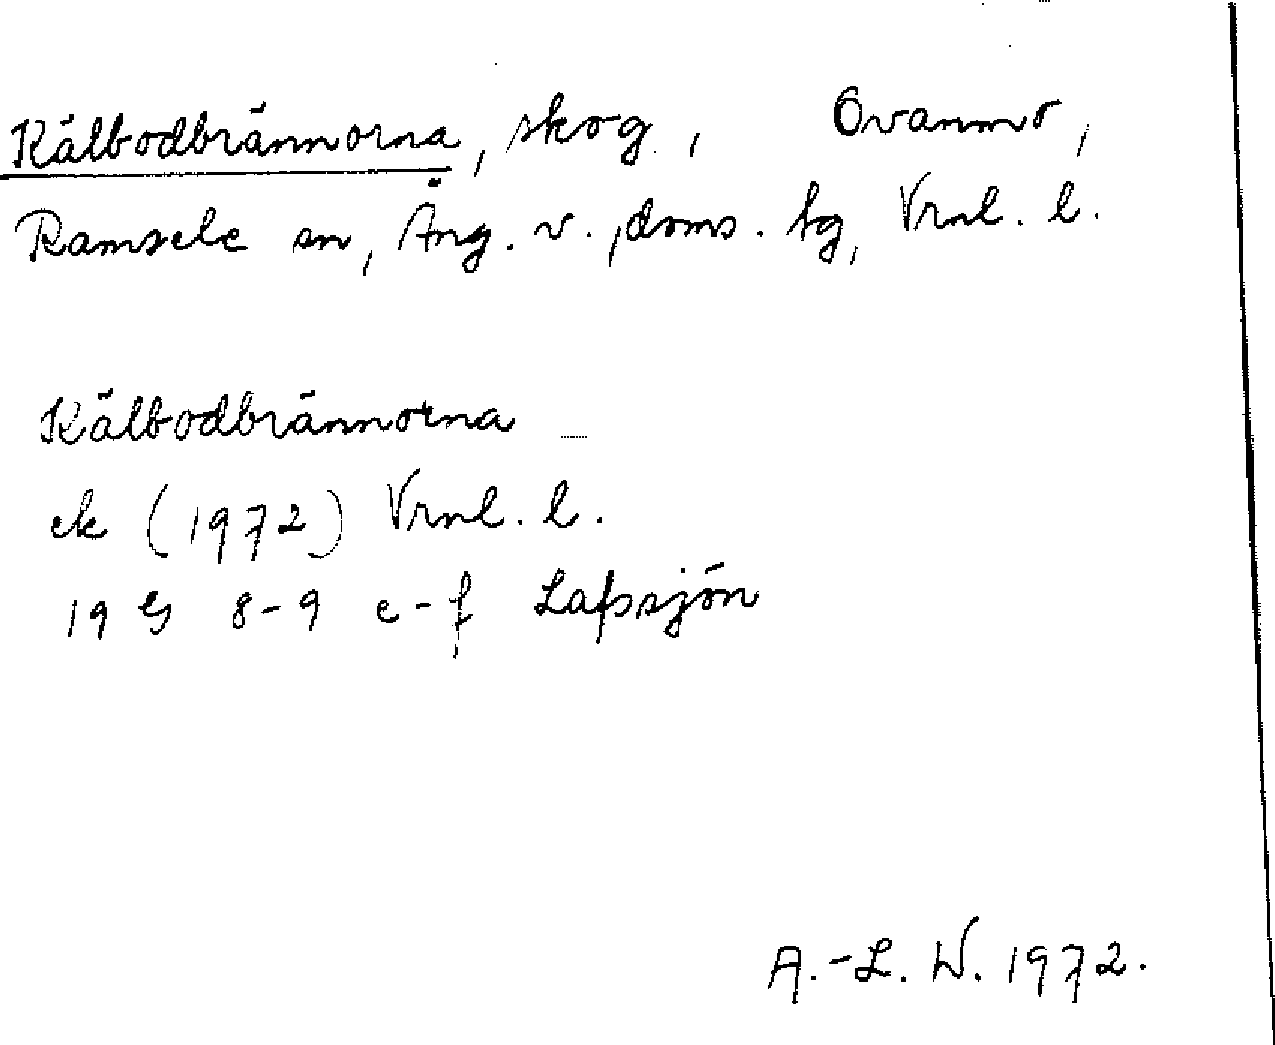 Kälbodbrännorna, skog, Ovanmo,
Ramsele sn, Äng. v., doms. tg, Vrnl. l.
Kälbodbrännorna
ek (1972) Vrnl. l.
19 G 8-9 e-f Lafssjön
A.-L. W. 1972.